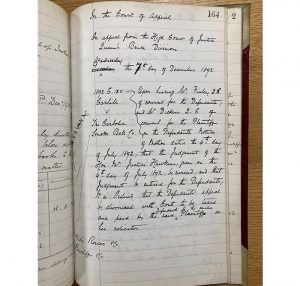 164
2
In the Court of Appeal
On appeal from the High Court of Justice
Queen's Bench Division
Wednesday
the 7th day of December 1892
1892 C. 120
Upon hearing Mr. Finlay Q.C.
Carlill
of counsel for the Defendants
v
and Mr. Dickens Q.C. of
The Carbolic
counsel for the Plaintiff
Smoke Ball Co.
On the Defendants Notice
of Motion dated the 6th day
of July 1892, that the judgment of the
Hon. Mr. Justice Hawkins, given on the
4th day of July 1892, be reversed, and that
Judgment be entered for the Defendants,
It is Ordered that the Defendants appeal
be dismissed with Costs to be taxed
and paid by the Defendants to the
said Plaintiff or
her solicitor